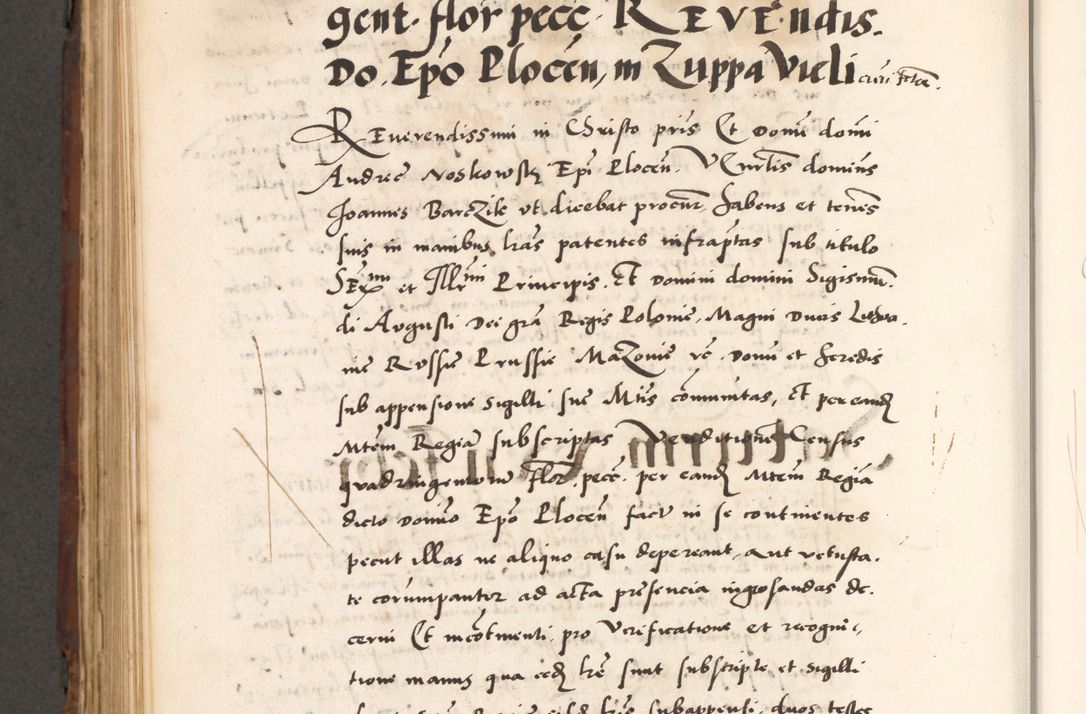 gent. flor pecc. REVE·ndis.
Do. Epo Plocen, in Zuppa Vieli
Reuerendissimi in Christo pris Et Domi domi
Andree Noskowsky Epi Plocen. dominus
Joannes Barczik vt dicebat procur. habens et tenes
suis in manibus lras patentes infraptas sub titulo
et Principis. Et Domini domini Sigismu.
di Augusti Dei gra Regis Polonie, Magni Ducis Lithua.
nie Russie Prussie Mazouie rc. Domi et heredis
sub appensione sigilli sue Mtis comunitas, Et per eand
Mtem Regia subscriptas Venditione Census
quadringentorum Flor. pecc. per eand Mtem Regia
dicto Domino Epo Plocen fact in se continentes
pecut illas ne aliquo casu depereant, aut vetusta.
te corumpantur ad acta presencia ingrosandas de.
cerni Et incotinenti pro Verificatione et recogni,
tione manus qua eed lre sunt subscripte et sigilli
subappensi, duos testes